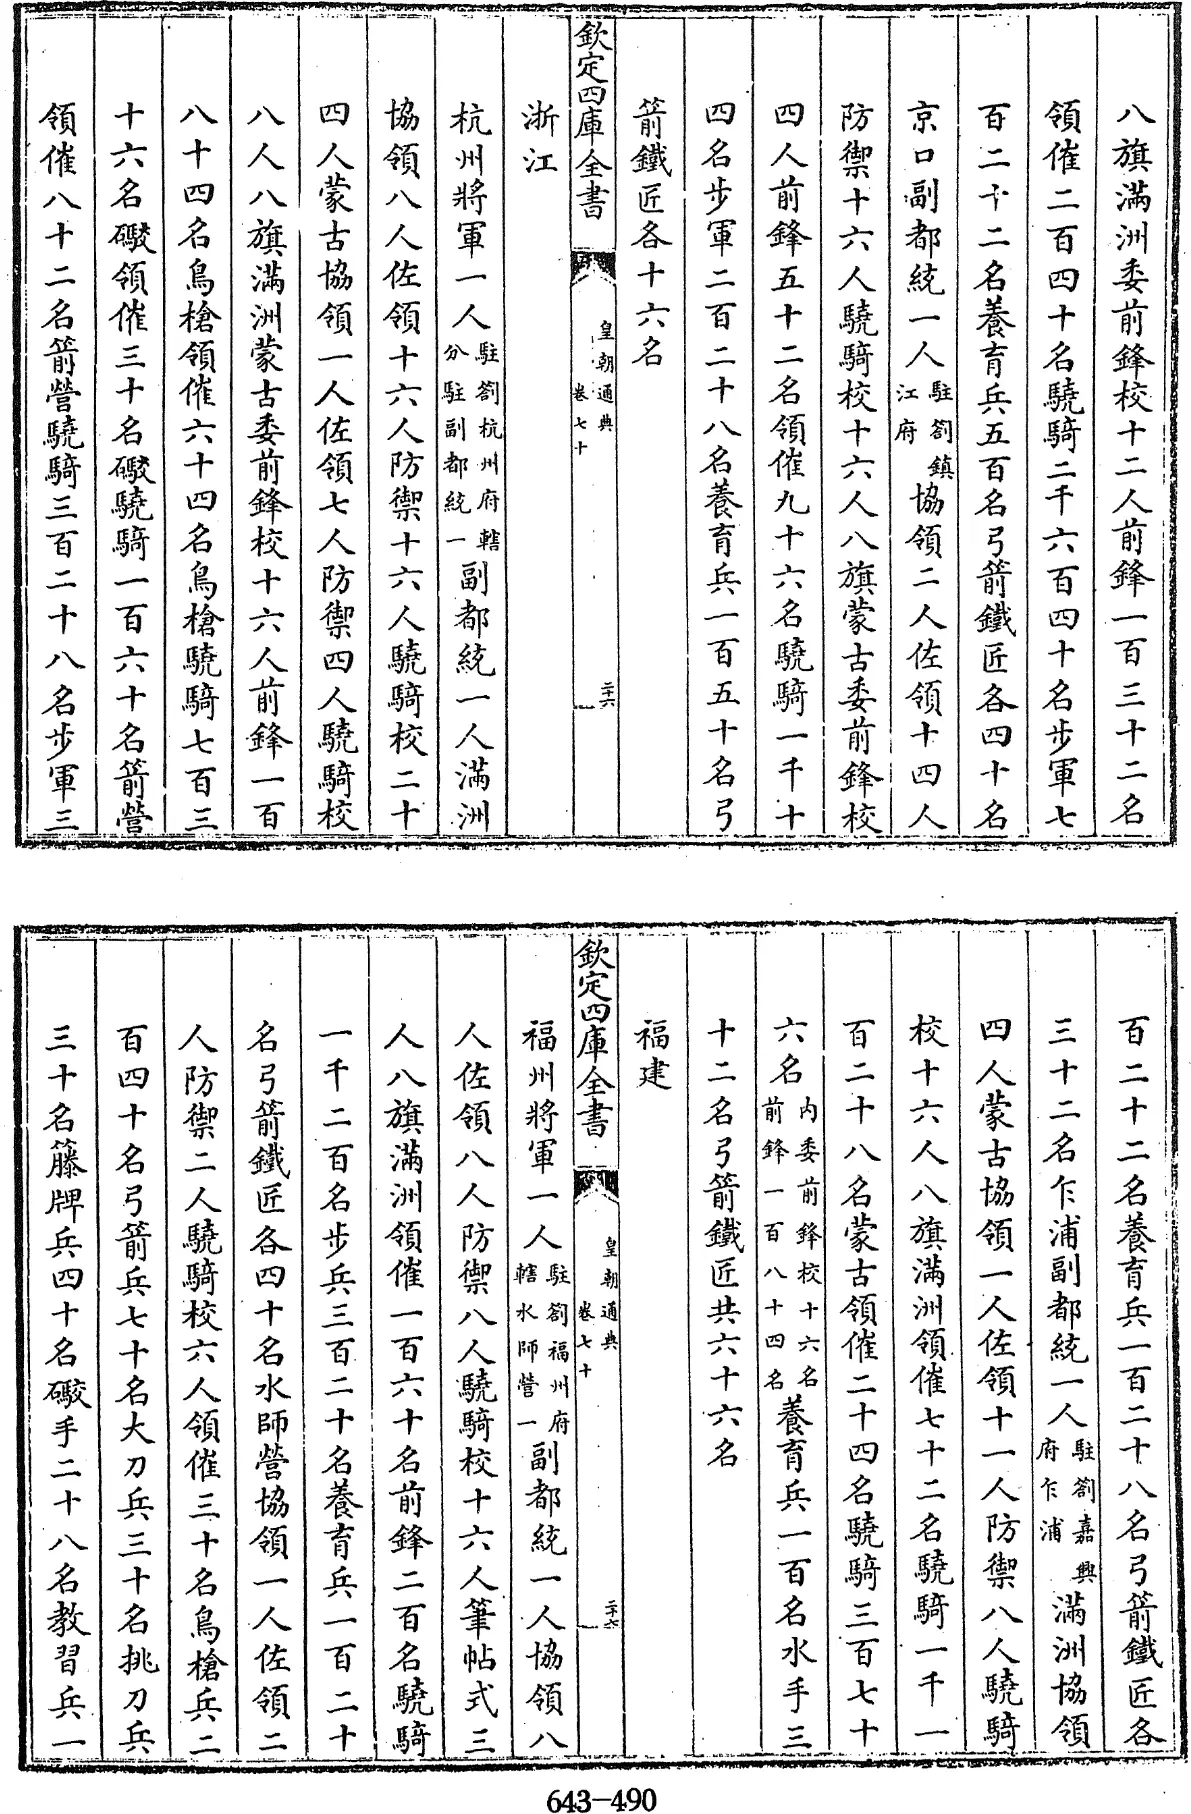 八旗滿洲委前鋒校十二人前鋒一百三十二名
領催二百四十名驍騎二千六百四十名步軍七
百二十二名養育兵五百名弓箭鐵匠各四十名
京口副都統一人駐劄鎮江府協領二人佐領十四人
防禦十六人驍騎校十六人八旗蒙古委前鋒校
四人前鋒五十二名領催九十六名驍騎一千十
四名步軍二百二十八名養育兵一百五十名弓
箭鐵匠各十六名
欽定四庫全書
皇朝通典
卷七十
二十六
浙江
杭州將軍一人駐劄杭州府轄分駐副都統一副都統一人滿洲
協領八人佐領十六人防禦十六人驍騎校二十
四人蒙古協領一人佐領七人防禦四人驍騎校
八人八旗滿洲蒙古委前鋒校十六人前鋒一百
八十四名鳥槍領催六十四名鳥槍驍騎七百三
十六名礮領催三十名礮驍騎一百六十名箭營
領催八十二名箭營驍騎三百二十八名步軍三
百二十二名養育兵一百二十八名弓箭鐵匠各
三十二名乍浦副都統一人駐劄嘉興府乍浦滿洲協領
四人蒙古協領一人佐領十一人防禦八人驍騎
校十六人八旗滿洲領催七十二名驍騎一千一
百二十八名蒙古領催二十四名驍騎三百七十
六名內委前鋒校十六名前鋒一百八十四名養育兵一百名水手三
十二名弓箭鐵匠共六十六名
福建
欽定四庫全書
皇朝通典
卷七十
二十六
福州將軍一人駐劄福州府轄水師營一副都統一人協領八
人佐領八人防禦八人驍騎校十六人筆帖式三
人八旗滿洲領催一百六十名前鋒二百名驍騎
一千二百名步兵三百二十名養育兵一百二十
名弓箭鐵匠各四十名水師營協領一人佐領二
人防禦二人驍騎校六人領催三十名鳥槍兵二
百四十名弓箭兵七十名大刀兵三十名挑刀兵
三十名籐牌兵四十名礮手二十八名教習兵一
643-490